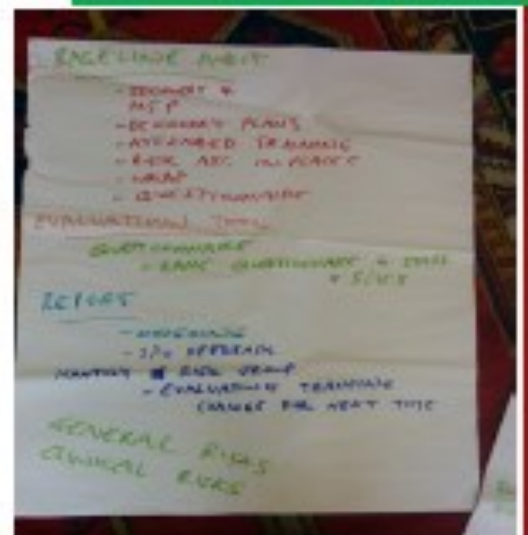 BASELINE AUDIT
-
MSP
- PLANS
- ATTENDED TRAINING
- RISK ASS. IN PLACE?
- WRAP
- QUESTIONNAIRE
EVALUATION TOOL
QUESTIONNAIRE
- SAME QUESTIONNAIRE 4 STAFF
+ S/USS
REPORT
-
- FEEDBACK
MONTHLY RISK GROUP
- EVALUATION TRAINING
CHANGE FOR NEXT TIME
GENERAL RISKS
CLINICAL RISKS